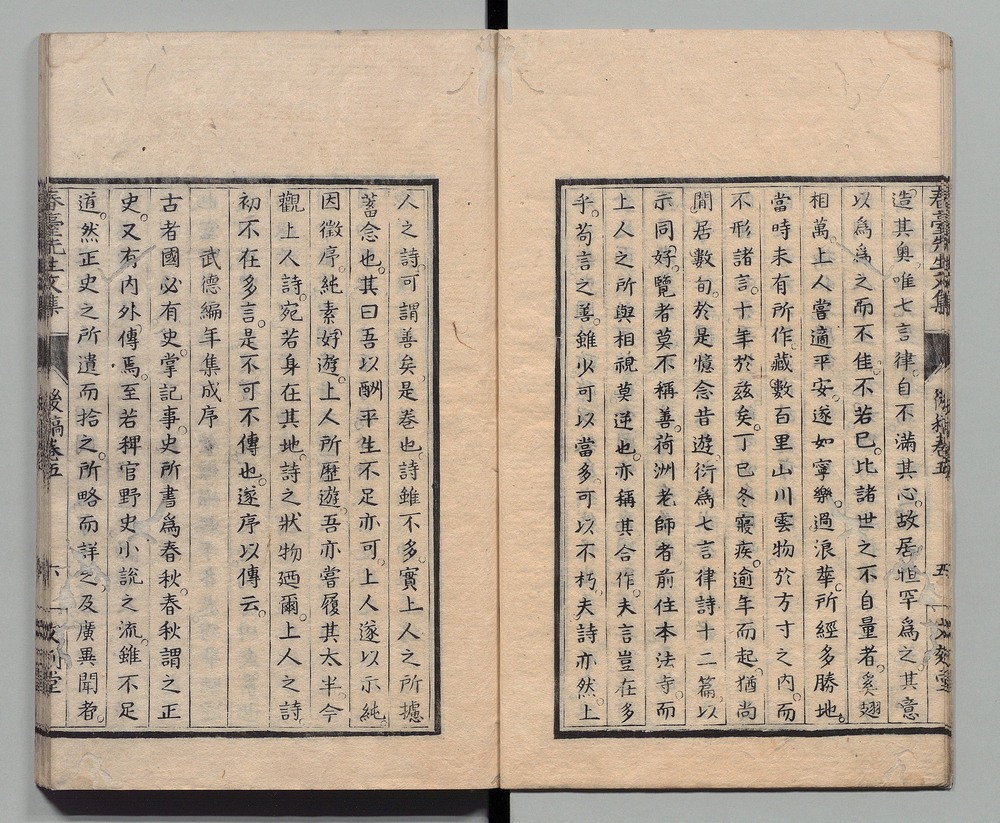 造其奧。唯七言律。自不滿其心。故居恒罕爲之。其意
以爲爲之而不佳。不若已。比諸世之不自量者。奚翅
相萬。上人嘗適平安。遂如寧樂。過浪華。所經多勝地。
當時未有所作。藏數百里山川雲物於方寸之內。而
不形諸言。十年於茲矣。丁巳冬寢疾。逾年而起。猶尚
閒居數旬。於是憶念昔遊。衍爲七言律詩十二篇。以
示同好。覽者莫不稱善。荷洲老師者。前住本法寺。而
上人之所與相視莫逆也。亦稱其合作。夫言豈在多
乎。苟言之善。雖少可以當多。可以不朽。夫詩亦然。上
春臺先生文集
後稿卷五
五
人之詩。可謂善矣。是卷也。詩雖不多。實上人之所攄
蓄念也。其曰吾以酬平生不足亦可。上人遂以示純。
因徵序。純素好遊。上人所歷遊。吾亦嘗履其太半。今
觀上人詩。宛若身在其地。詩之狀物廼爾。上人之詩。
初不在多言。是不可不傳也。遂序以傳云。
武德編年集成序
古者國必有史。掌記事。史所書爲春秋。春秋謂之正
史。又有內外傳焉。至若稗官野史小說之流。雖不足
道。然正史之所遺而拾之。所略而詳之。及廣異聞者。
春臺先生文集
後稿卷五
六